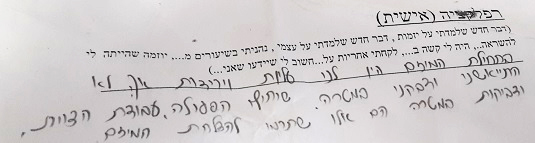 רפלקציה (אישית)
(דבר חדש שלמדתי על יזמות, דבר חדש שלמדתי על עצמי, נהניתי בשיעורים מ..., יוזמה שהייתה לי
להשראה..., היה לי קשה ב..., לקחתי אחריות על...חשוב לי שיידעו שאני...)
בתחילת המיזם היו לנו עליות וירידות אך לא
התייאשנו ודבקנו במטרה. שיתוף הפעולה, עבודת הצוות,
ודביקות במטרה הם אלו שתרמו להצלחת המיזם